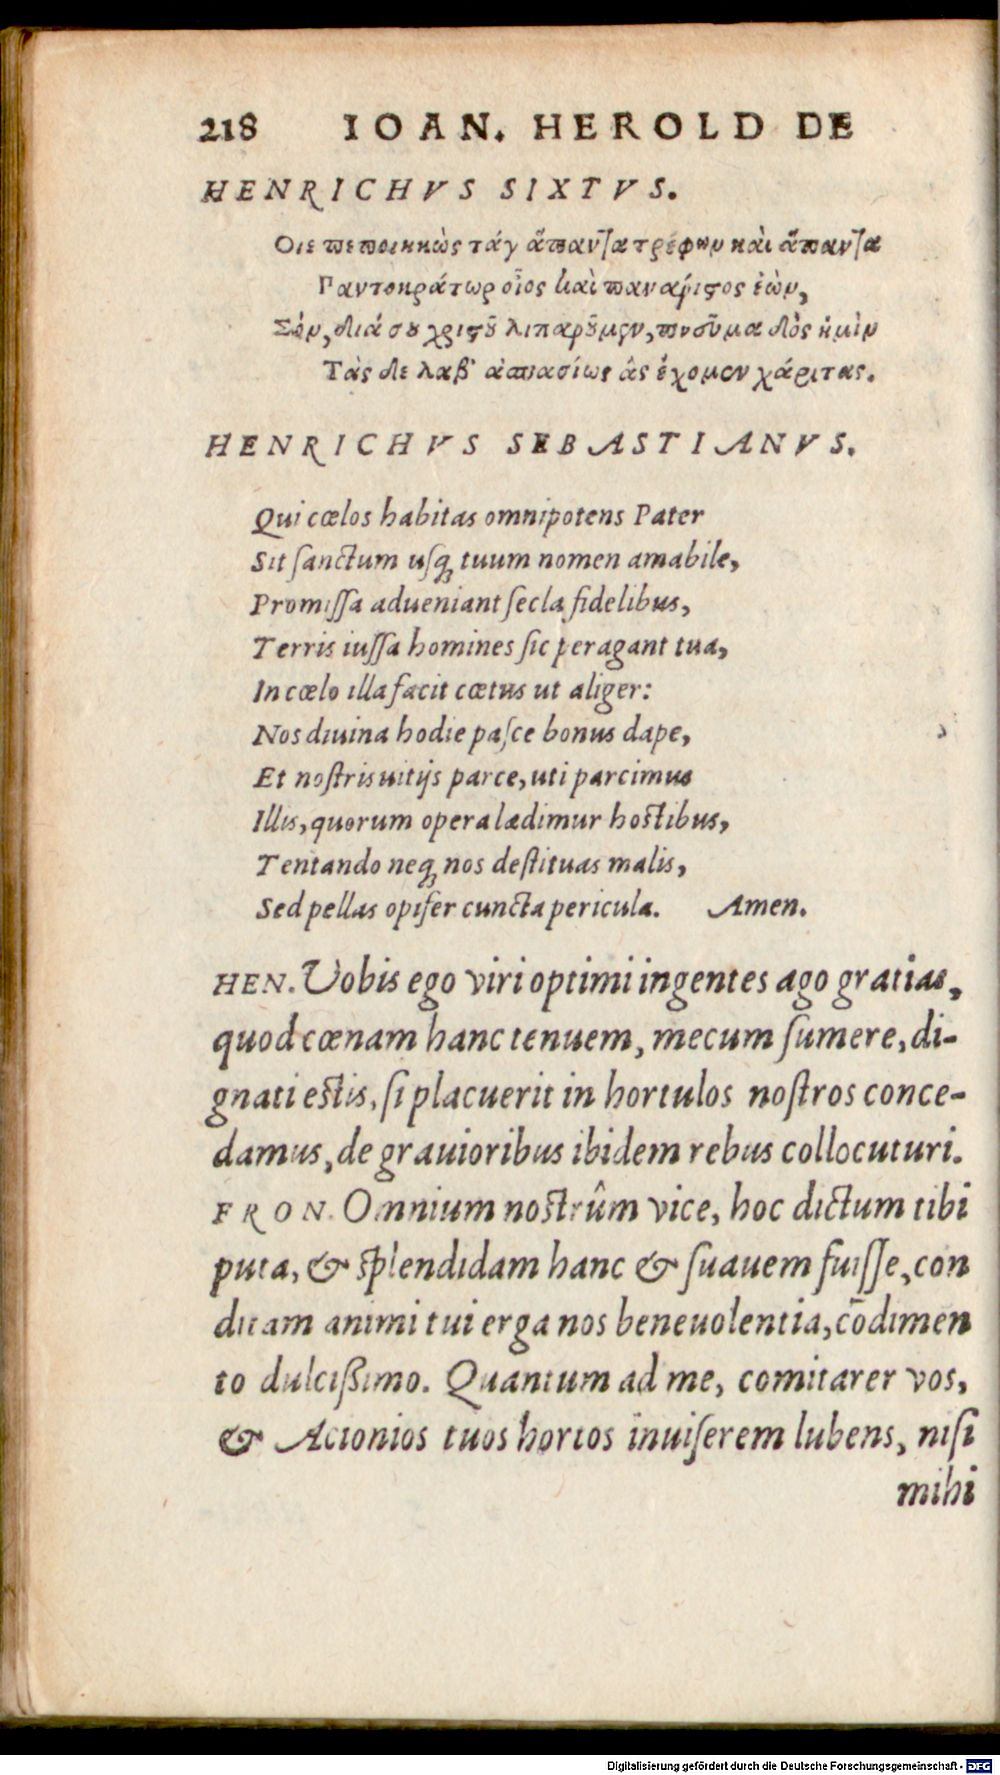 218 IOAN. HEROLD DE
HENRICHVS SIXTVS.
Οιε πεποιηκὼς τάγ ἅπανῖα τρέφων καὶ ἅπανῖα
Παντοκράτωρ οἷος καὶ παναριϛος ἐὼν,
Σὸν, διά σου χριϛοῦ λιπαροῦμεν, πνεῦμα δὸς ἡμὶν
Τὰς δε λαβ' ἀσπασίως ἃς ἔχομεν χάριτας.
HENRICHVS SEBASTIANVS.
Qui cœlos habitas omnipotens Pater
Sit ſanctum uſq; tuum nomen amabile,
Promiſſa adueniant ſecla fidelibus,
Terris iuſſa homines ſic peragant tua,
In cœlo illa facit cœtus ut aliger:
Nos diuina hodie paſce bonus dape,
Et noſtris uitijs parce, uti parcimus
Illis, quorum opera lædimur hoſtibus,
Tentando neq; nos deſtituas malis,
Sed pellas opifer cuncta pericula. Amen.
HEN. Vobis ego viri optimi ingentes ago gratias,
quod cœnam hanc tenuem, mecum ſumere, di-
gnati eſtis, ſi placuerit in hortulos noſtros conce-
damus, de grauioribus ibidem rebus collocuturi.
FRON. Omnium noſtrûm vice, hoc dictum tibi
puta, & ſplendidam hanc & ſuauem fuiſſe, con
ditam animi tui erga nos beneuolentia, cōdimen
to dulcißimo. Quantum ad me, comitarer vos,
& Acionios tuos hortos inuiſerem lubens, niſi
mihi
Digitalisierung gefördert durch die Deutsche Forschungsgemeinschaft - DFG